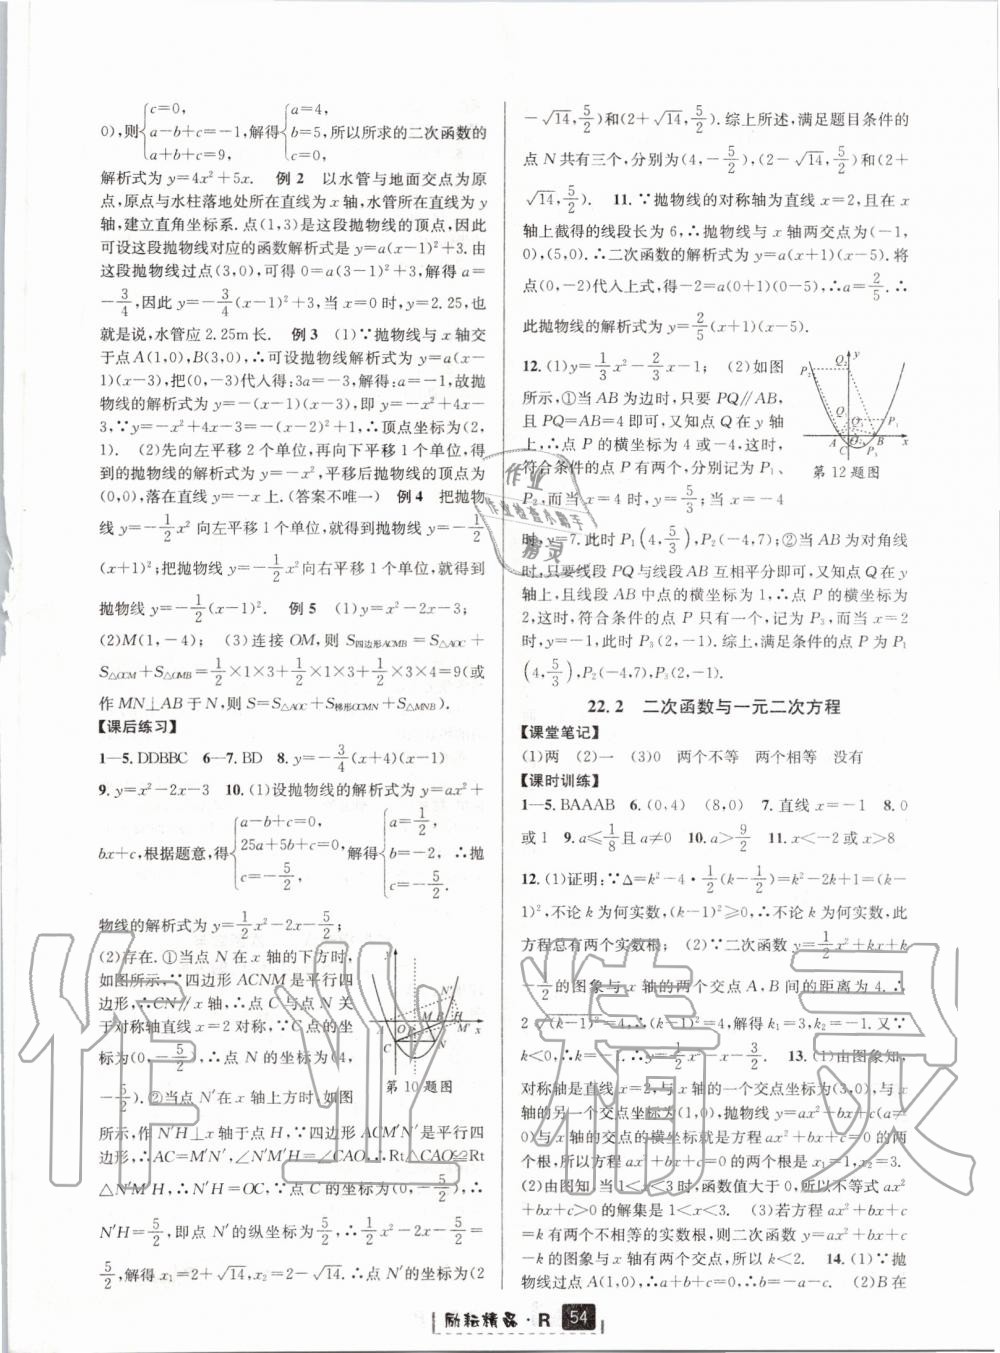 0),则{c=0, a-b+c=-1, a+b+c=9,解得{a=4, b=5, c=0,所以所求的二次函数的
解析式为 y=4x²+5x. 例 2 以水管与地面交点为原
点,原点与水柱落地处所在直线为 x 轴,水管所在直线为 y
轴,建立直角坐标系.点(1,3)是这段抛物线的顶点,因此
可设这段抛物线对应的函数解析式是 y=a(x-1)²+3.由
这段抛物线过点(3,0),可得 0=a(3-1)²+3,解得 a=
-3/4,因此 y=-3/4(x-1)²+3,当 x=0 时,y=2.25,也
就是说,水管应 2.25m 长. 例 3 (1)∵抛物线与 x 轴交
于点 A(1,0),B(3,0),∴可设抛物线解析式为 y=a(x-
1)(x-3),把(0,-3)代入得:3a=-3,解得:a=-1,故抛
物线的解析式为 y=-(x-1)(x-3),即 y=-x²+4x-
3,∵y=-x²+4x-3=-(x-2)²+1,∴顶点坐标为(2,
1). (2)先向左平移 2 个单位,再向下平移 1 个单位,得到
的抛物线的解析式为 y=-x²,平移后抛物线的顶点为
(0,0),落在直线 y=-x 上.(答案不唯一) 例 4 把抛物
线 y=-1/2x² 向左平移 1 个单位,就得到抛物线 y=-1/2
(x+1)²;把抛物线 y=-1/2x²向右平移 1 个单位,就得到
抛物线 y=-1/2(x-1)². 例 5 (1)y=x²-2x-3;
(2)M(1,-4); (3)连接 OM,则 S四边形ACMB=S△AOC+
S△OCM+S△OMB=1/2×1×3+1/2×1×3+1/2×3×4=9(或
作 MN⊥AB 于 N,则 S=S△AOC+S梯形OCMN+S△MNB).
【课后练习】
1—5. DDBBC 6—7. BD 8. y=-3/4(x+4)(x-1)
9. y=x²-2x-3 10. (1)设抛物线的解析式为 y=ax²+
bx+c,根据题意,得{a-b+c=0, 25a+5b+c=0, c=-5/2,解得{a=1/2, b=-2, c=-5/2. ∴抛
物线的解析式为 y=1/2x²-2x-5/2;
(2)存在.①当点 N 在 x 轴的下方时,
如图所示,∵四边形 ACNM 是平行四
边形,∴CN∥x 轴,∴点 C 与点 N 关
于对称轴直线 x=2 对称,∵C 点的坐
标为(0,-5/2),∴点 N 的坐标为(4,
-5/2).②当点 N′在 x 轴上方时,如图
第 10 题图
所示,作 N′H⊥x 轴于点 H,∵四边形 ACM′N′是平行四
边形,∴AC=M′N′,∠N′M′H=∠CAO,∴Rt△CAO≌Rt
△N′M′H,∴N′H=OC.∵点 C 的坐标为(0,-5/2),∴
N′H=5/2,即点 N′的纵坐标为5/2,∴1/2x²-2x-5/2=
5/2,解得 x₁=2+√14,x₂=2-√14,∴点 N′的坐标为(2
-√14,5/2)和(2+√14,5/2).综上所述,满足题目条件的
点 N 共有三个,分别为(4,-5/2),(2-√14,5/2),(2+
√14,5/2). 11. ∵抛物线的对称轴为直线 x=2,且在 x
轴上截得的线段长为 6,∴抛物线与 x 轴两交点为(-1,
0),(5,0).∴二次函数的解析式为 y=a(x+1)(x-5).将
点(0,-2)代入上式,得-2=a(0+1)(0-5),∴a=2/5.∴
此抛物线的解析式为 y=2/5(x+1)(x-5).
12. (1)y=1/3x²-2/3x-1; (2)如图
所示,①当 AB 为边时,只要 PQ∥AB,
且 PQ=AB=4 即可,又知点 Q 在 y 轴
上,∴点 P 的横坐标为 4 或-4,这时,
符合条件的点 P 有两个,分别记为 P₁、
P₂,而当 x=4 时,y=5/3;当 x=-4
第 12 题图
时,y=7.此时 P₁(4,5/3),P₂(-4,7);②当 AB 为对角线
时,只要线段 PQ 与线段 AB 互相平分即可,又知点 Q 在 y
轴上,且线段 AB 中点的横坐标为 1,∴点 P 的横坐标为
2,这时,符合条件的点 P 只有一个,记为 P₃,而当 x=2
时,y=-1,此时 P₃(2,-1).综上,满足条件的点 P 为 P₁
(4,5/3),P₂(-4,7),P₃(2,-1).
22.2 二次函数与一元二次方程
【课堂笔记】
(1)两 (2)一 (3)0 两个不等 两个相等 没有
【课时训练】
1—5. BAAAB 6. (0,4) (8,0) 7. 直线 x=-1 8. 0
或 1 9. a≤1/8且 a≠0 10. a>9/2 11. x<-2 或 x>8
12. (1)证明:∵Δ=k²-4·1/2(k-1/2)=k²-2k+1=(k-
1)²,不论 k 为何实数,(k-1)²≥0,∴不论 k 为何实数,此
方程总有两个实数根; (2)∵二次函数 y=1/2x²+kx+k
-1/2的图象与 x 轴的两个交点 A,B 间的距离为 4.∴
2√(k-1)²=4,∴(k-1)²=4,解得 k₁=3,k₂=-1.又∵
k<0,∴k=-1.∴y=1/2x²-x-3/2 13. (1)由图象知,
对称轴是直线 x=2,与 x 轴的一个交点坐标为(3,0),∴与
x 轴的另一个交点坐标为(1,0),抛物线 y=ax²+bx+c(a≠
0)与 x 轴的交点的横坐标就是方程 ax²+bx+c=0 的两
个根,所以方程 ax²+bx+c=0 的两个根是 x₁=1,x₂=3.
(2)由图知,当 1<x<3 时,函数值大于 0,所以不等式 ax²
+bx+c>0 的解集是 1<x<3. (3)若方程 ax²+bx+c
=k 有两个不相等的实数根,则二次函数 y=ax²+bx+c
-k 的图象与 x 轴有两个交点,所以 k<2. 14. (1)∵抛
物线过点 A(1,0),∴a+b+c=0,∴b=-a-c. (2)B 在
励耘精品·R 54